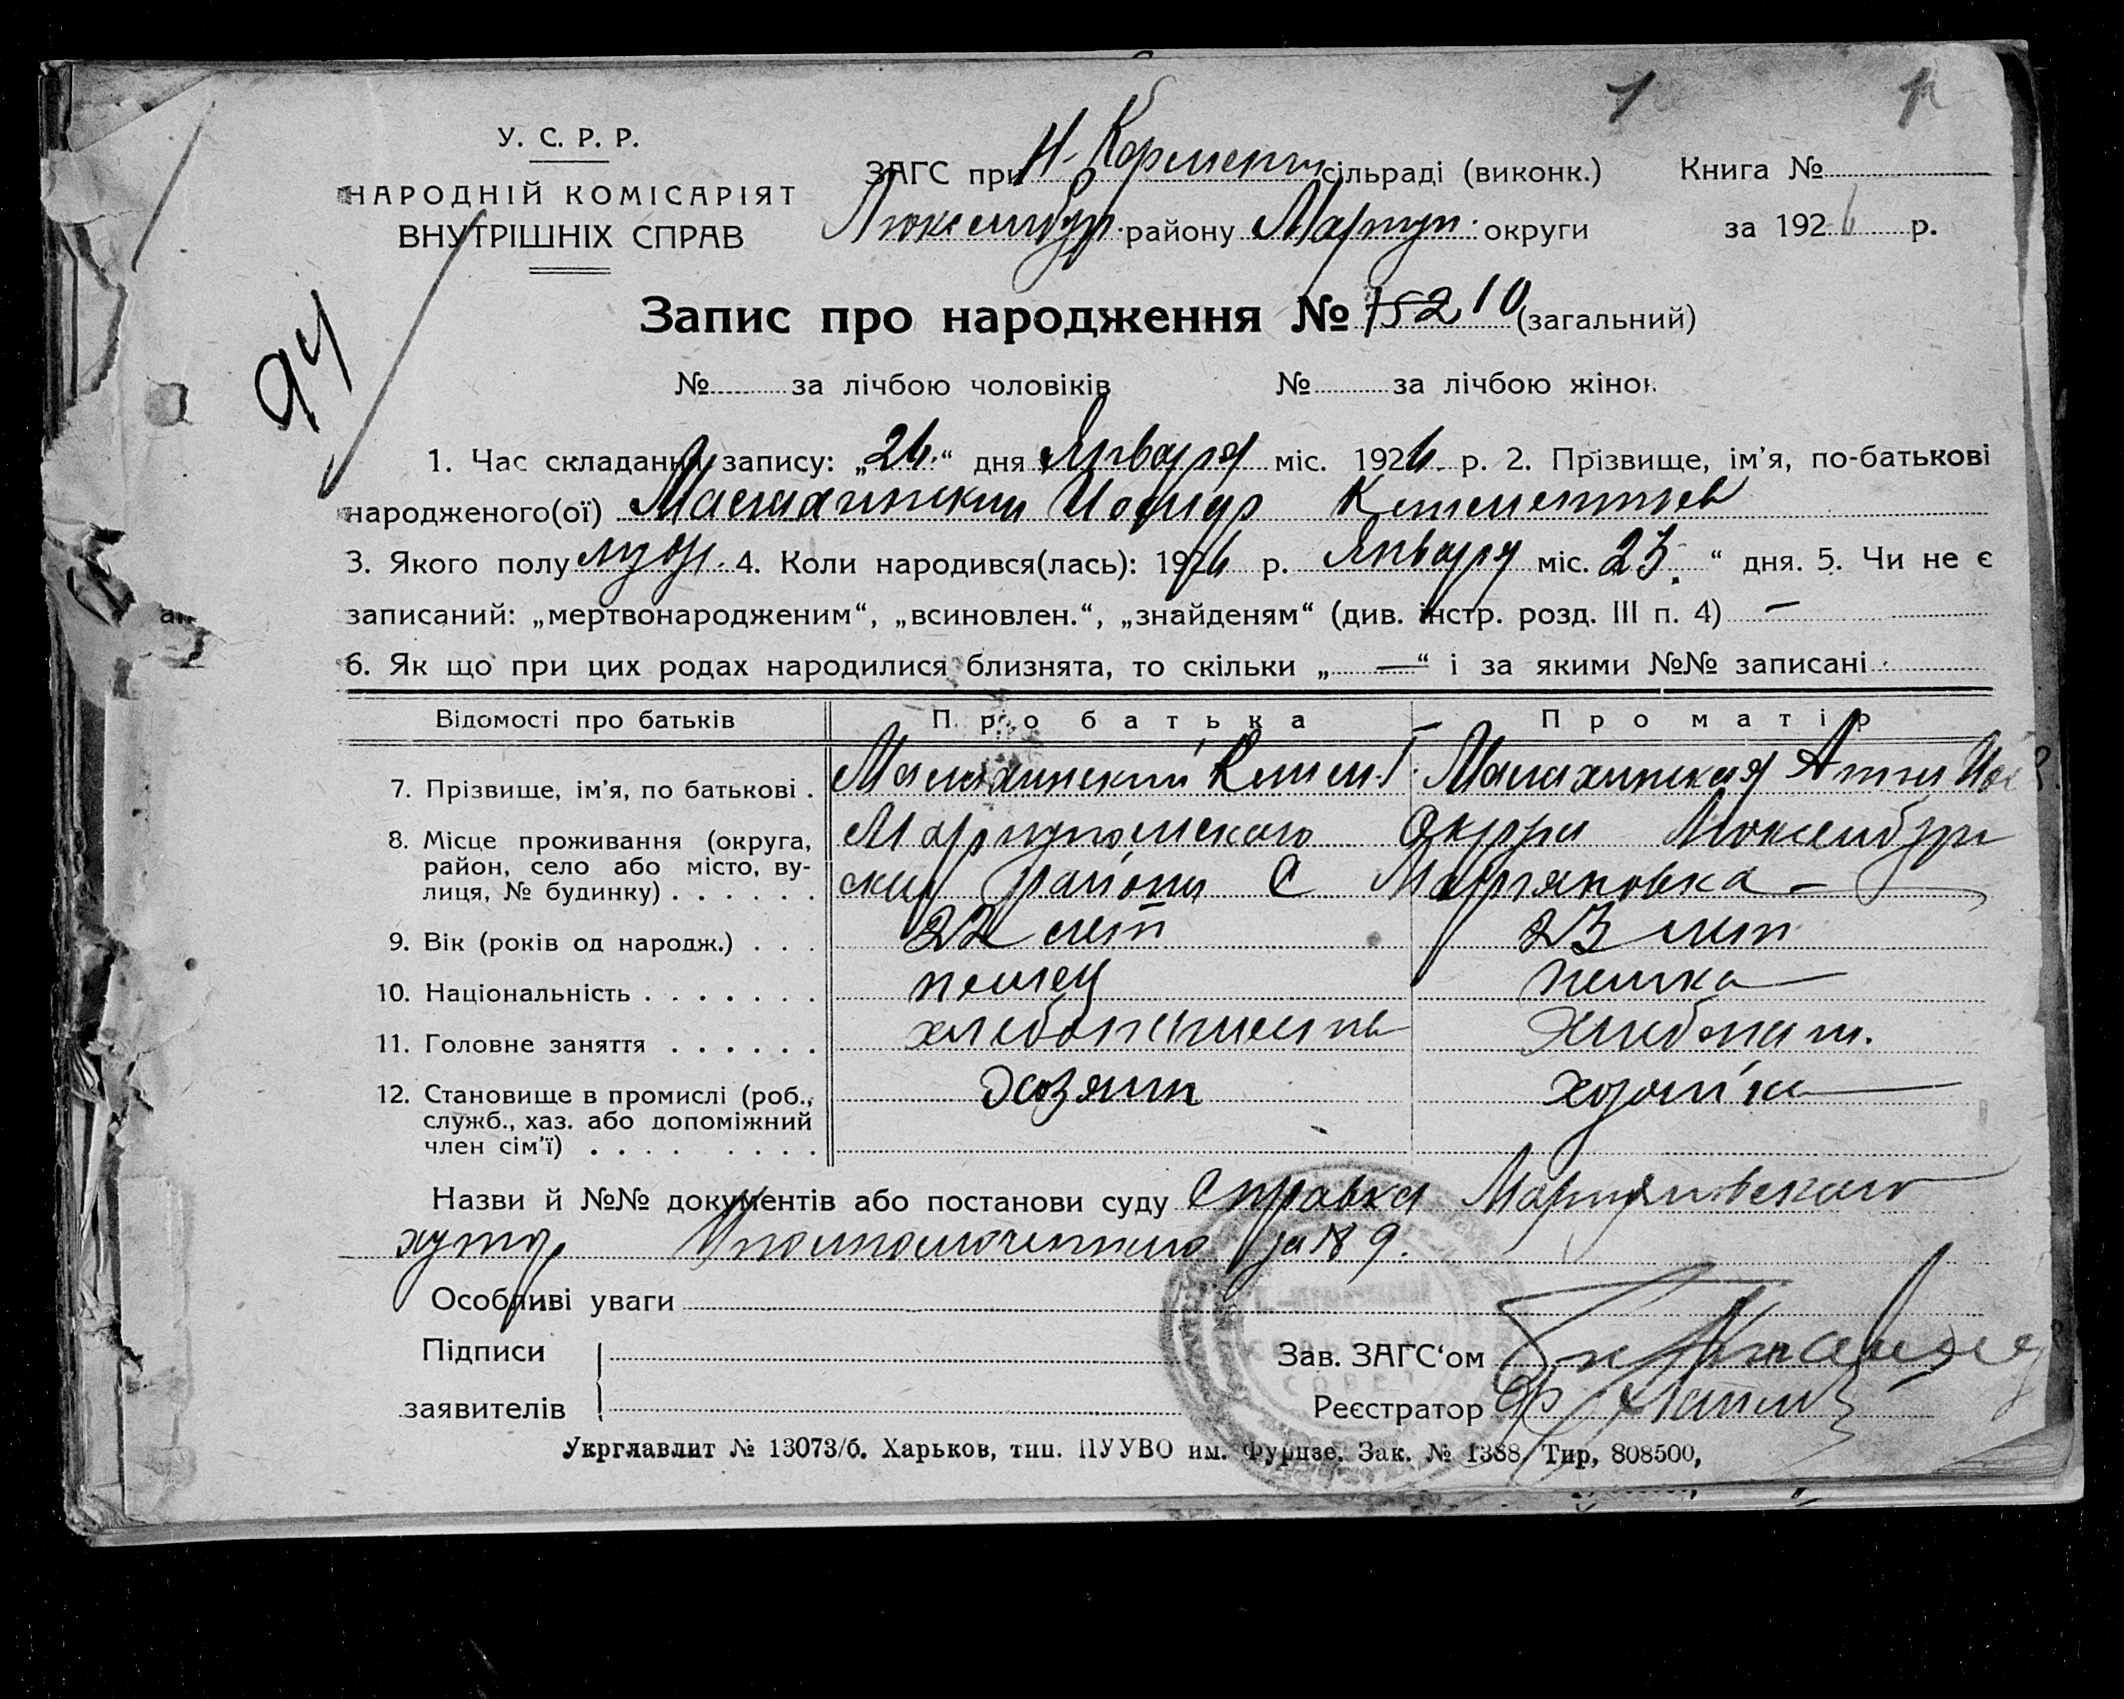 1
У. С. Р. Р.
НАРОДНІЙ КОМІСАРІЯТ
ВНУТРІШНІХ СПРАВ
ЗАГС при Н-Кермент сільраді (виконк.) Книга №
Люксембур. району Мариуп. округи за 1926 р.
94
Запис про народження № 152 10 (загальний)
№ за лічбою чоловіків № за лічбою жінок
1. Час складання запису: „26.“ дня Января міс. 1926. р. 2. Прізвище, ім'я, по-батькові
народженого(ої) Малахинский
3. Якого полу муж. 4. Коли народився(лась): 1926 р. Января міс. 23. “ дня. 5. Чи не є
записаний: „мертвонародженим“, „всиновлен.“, „знайденям“ (див. інстр. розд. III п. 4) —
6. Як що при цих родах народилися близнята, то скільки „—“ і за якими №№ записані
Відомості про батьків Про батька Про матір
7. Прізвище, ім'я, по батькові . Малахинский Клим. Г. Малахинская Анна
8. Місце проживання (округа,
район, село або місто, ву-
лиця, № будинку) . . . . . .
Мариупольского Округа Люксембург
ску района С Марьяновка —
9. Вік (років од народж.) . . . 22 лет 23 лет
10. Національність . . . . . . . немец немка
11. Головне заняття . . . . . . хлебопашество Хлебопаш.
12. Становище в промислі (роб.,
служб., хаз. або допоміжний
член сім'ї) . . . . . . . .
хозяин хозяйка
Назви й №№ документів або постанови суду Справка Марьяновского
хутор Уполномоченного за № 9.
Особливі уваги
Підписи
заявителів
Зав. ЗАГС‘ом
Реєстратор
Укрглавлит № 13073/б. Харьков, тип. ПУУВО им. Фурнзе. Зак. № 1388. Тир, 808500,